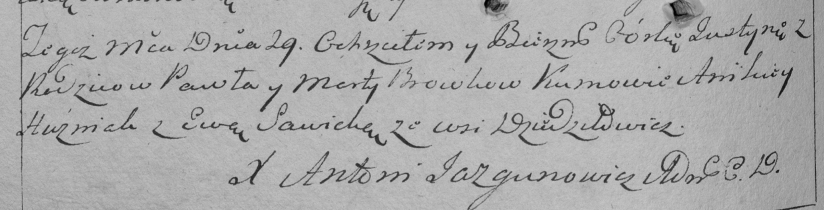 Tegoż Mca Dnia 29. Ochrzciłem y Bierzm Córkę Justynę z
Rodzicow Pawła y Marty Browkow Kumowie Anikiey
Huzniak z Ewą Sawicką ze wsi Dziedziłowicz.
X Antoni Jazgunowicz Adm C. D.